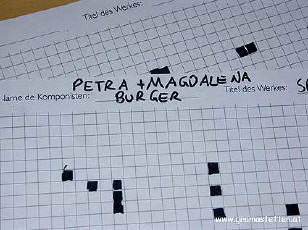 Titel des Werkes:
PETRA + MAGDALENA
Name de Komponisten: BURGER
Titel des Werkes:
www.gramastetten.at